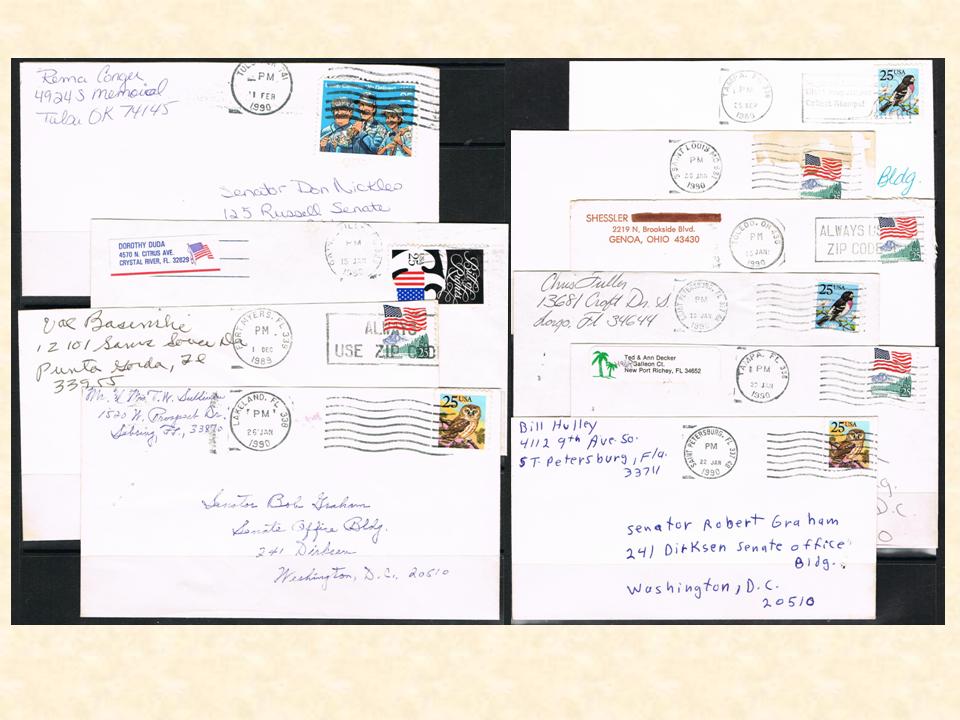 Rema Conger
4924 S Memorial
Tulsa OK 74145
PM
1990
Senator Don Nickles
125 Russell Senate
DOROTHY DUDA
4570 N. CITRUS AVE.
CRYSTAL RIVER, FL 32629
PM
15 JAN
25
Punta Gorda, Fl
33955
FORT MYERS, FL 339
PM
1 DEC
1989
ALWAYS
USE ZIP CODE
25
Mr. & Mrs. T. W. Sullivan
1520 W. Prospect Dr.
Sebring, Fl., 33870
LAKELAND, FL 338
PM
26 JAN
1990
25 USA
Senator Bob Graham
Senate Office Bldg.
241 Dirksen
Washington, D.C., 20510
TAMPA, FL
PM
1989
Collect Stamps!
25 USA
SAINT LOUIS MO
PM
1990
Bldg.
SHESSLER
2219 N. Brookside Blvd.
GENOA, OHIO 43430
TOLEDO, OH
PM
15 JAN
1990
ALWAYS US
ZIP CODE
25
Chris Fuller
13681 Croft Dr. S.
Largo, Fl 34644
PM
1990
25 USA
Ted & Ann Decker
Galleon Ct.
New Port Richey, FL 34652
TAMPA, FL
PM
1990
Bill Hulley
4112 9th Ave. So.
ST. Petersburg, Fla.
33711
SAINT PETERSBURG, FL
PM
22 JAN
1990
25 USA
senator Robert Graham
241 Dirksen Senate office
Bldg.
Washington, D.C.
20510
g.
D.C.
0